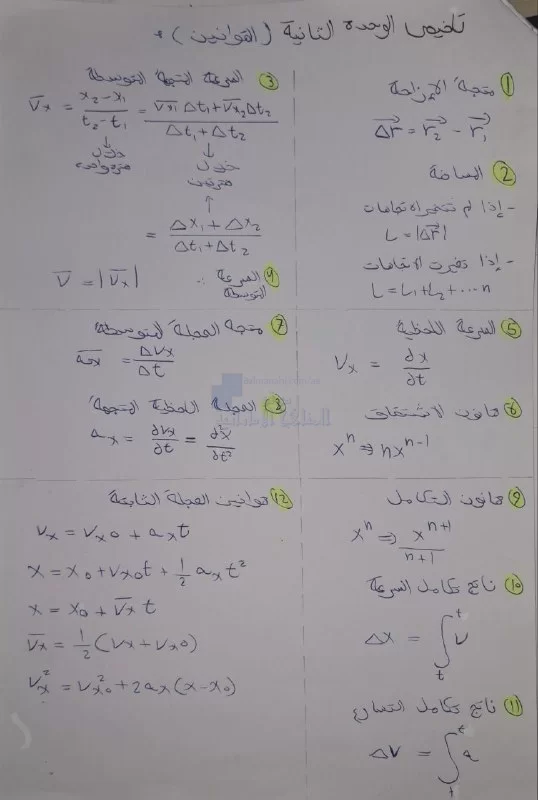 تلخيص الوحدة الثانية (القوانين) :
① متجهة الإزاحة
Δr = r₂ - r₁
② المسافة
- إذا لم تتغير الاتجاهات
L = |Δr|
- إذا تغيرت الاتجاهات
L = L₁ + L₂ + ... n
③ السرعة المتجهة المتوسطة
V̅x = x₂ - x₁ / t₂ - t₁ = V̅x₁ Δt₁ + V̅x₂ Δt₂ / Δt₁ + Δt₂
خلال
= Δx₁ + Δx₂ / Δt₁ + Δt₂
④ السرعة المتوسطة :
V̅ = |V̅x|
⑤ السرعة اللحظية
Vx = ∂x / ∂t
⑥ قانون الاشتقاق
xⁿ ⇒ nxⁿ⁻¹
⑦ متجهة العجلة المتوسطة
a̅x = ΔVx / Δt
⑧ العجلة اللحظية المتجهة
ax = ∂Vx / ∂t = ∂²x / ∂t²
⑨ قانون التكامل
xⁿ ⇒ xⁿ⁺¹ / n+1
⑩ ناتج تكامل السرعة
Δx = ∫ₜᵗ V
⑪ ناتج تكامل التسارع
ΔV = ∫ₜᵗ a
⑫ قوانين العجلة الثابتة
Vx = Vx₀ + axt
x = x₀ + Vx₀t + 1/2 axt²
x = x₀ + V̅x t
V̅x = 1/2 (Vx + Vx₀)
Vx² = Vx₀² + 2ax(x - x₀)